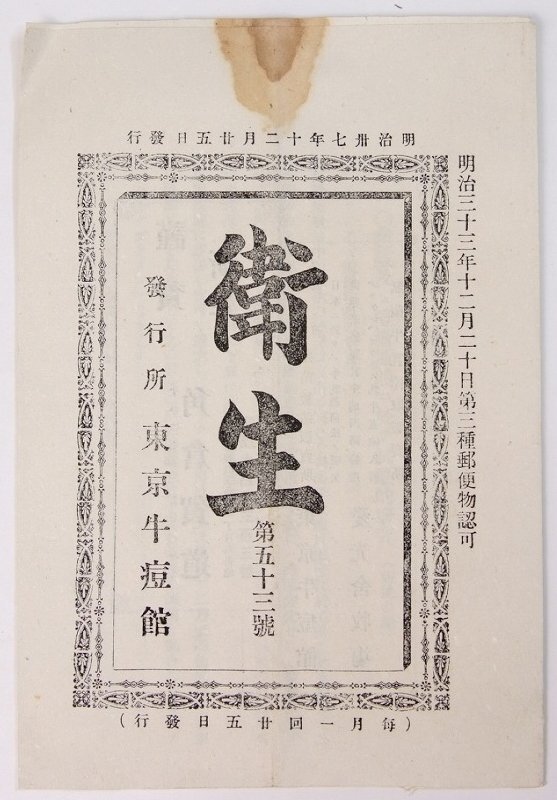 明治三十三年十二月二十日第三種郵便物認可
明治卅七年十二月廿五日發行
衛生
第五十三號
發行所 東京牛痘館
（每月一回廿五日發行）